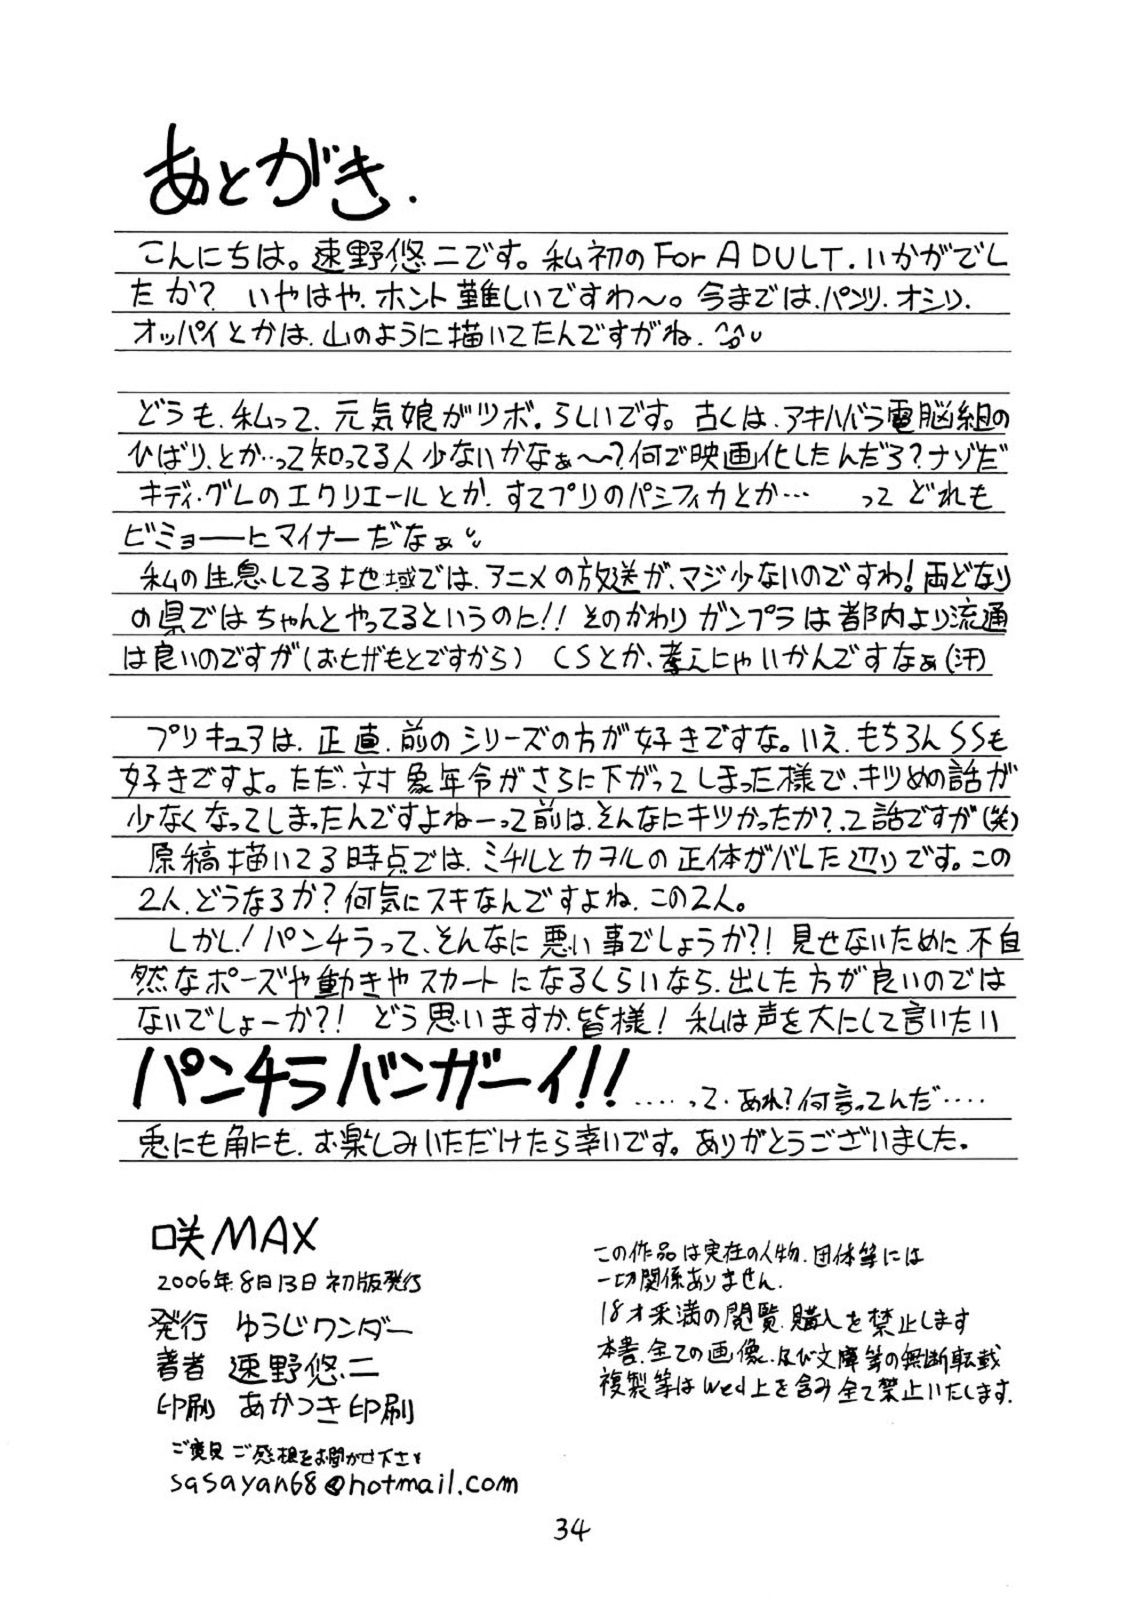 あとがき.
こんにちは。速野悠二です。私初のFor ADULT.いかがでし
たか? いやはや、ホント難しいですわ〜。今まではパンツ、オシリ、
オッパイとかは、山のように描いてたんですがね、^^;
どうも、私って、元気娘がツボ。らしいです。古くは、アキハバラ電脳組の
ひばり、とか…って知ってる人少ないかなぁ〜?何で映画化したんだろ?ナゾだ
キディ・グレのエクリエールとか、すてプリのパシフィカとか… って どれも
ビミョーーにマイナーだなぁ
私の生息してる地域では、アニメの放送が、マジ少ないのですわ!両どなり
の県ではちゃんとやってるというのに!! そのかわりガンプラは都内より流通
は良いのですが(おヒザもとですから) CSとか、考えにゃいかんですなぁ(汗)
プリキュアは、正直、前のシリーズの方が好きですな。いえ、もちろんSSも
好きですよ。ただ、対象年令がさらに下がってしまった様で、キツめの話が
少なくなってしまったんですよねーって前は、そんなにキツかったか?って話ですが(笑)
原稿描いてる時点では、ミチルとカヲルの正体がバレた辺りです。この
2人、どうなるか?何気にスキなんですよね、この2人。
しかし!パンチラって、そんなに悪い事でしょうか?!見せないために、不自
然なポーズや動きやスカートになるくらいなら、出した方が良いのでは
ないでしょーか?! どう思いますか、皆様! 私は声を大にして言いたい
パンチラバンガーイ!! ‥‥って、あれ?何言ってんだ‥‥
兎にも角にも、お楽しみいただけたら幸いです。ありがとうございました。
咲MAX
2006年8月13日 初版発行
発行 ゆうじワンダー
著者 速野悠二
印刷 あかつき印刷
ご意見 ご感想をお聞かせ下さい
sasayan68@hotmail.com
この作品は実在の人物、団体等には
一切関係ありません.
18才未満の閲覧、購入を禁止します
本書、全ての画像、及び文庫等の無断転載
複製等はWed上を含み全て禁止いたします.
34